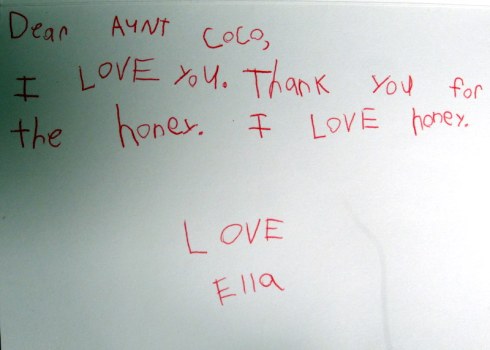 Dear AYNT COCO,
I LOVE YOU. Thank you for
the honey. I LOVE honey.
LOVE
Ella